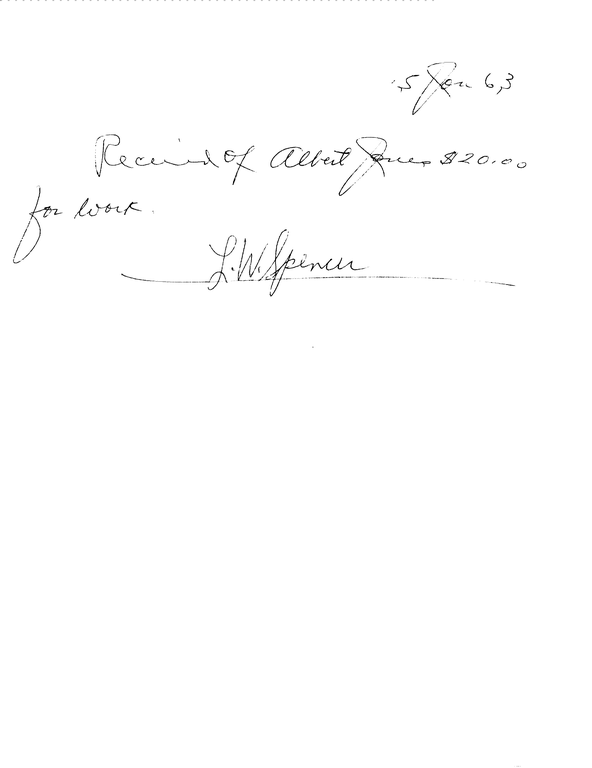 5 Jan 63
Received of Albert Jones $20.00
for work.
L.W. Spencer